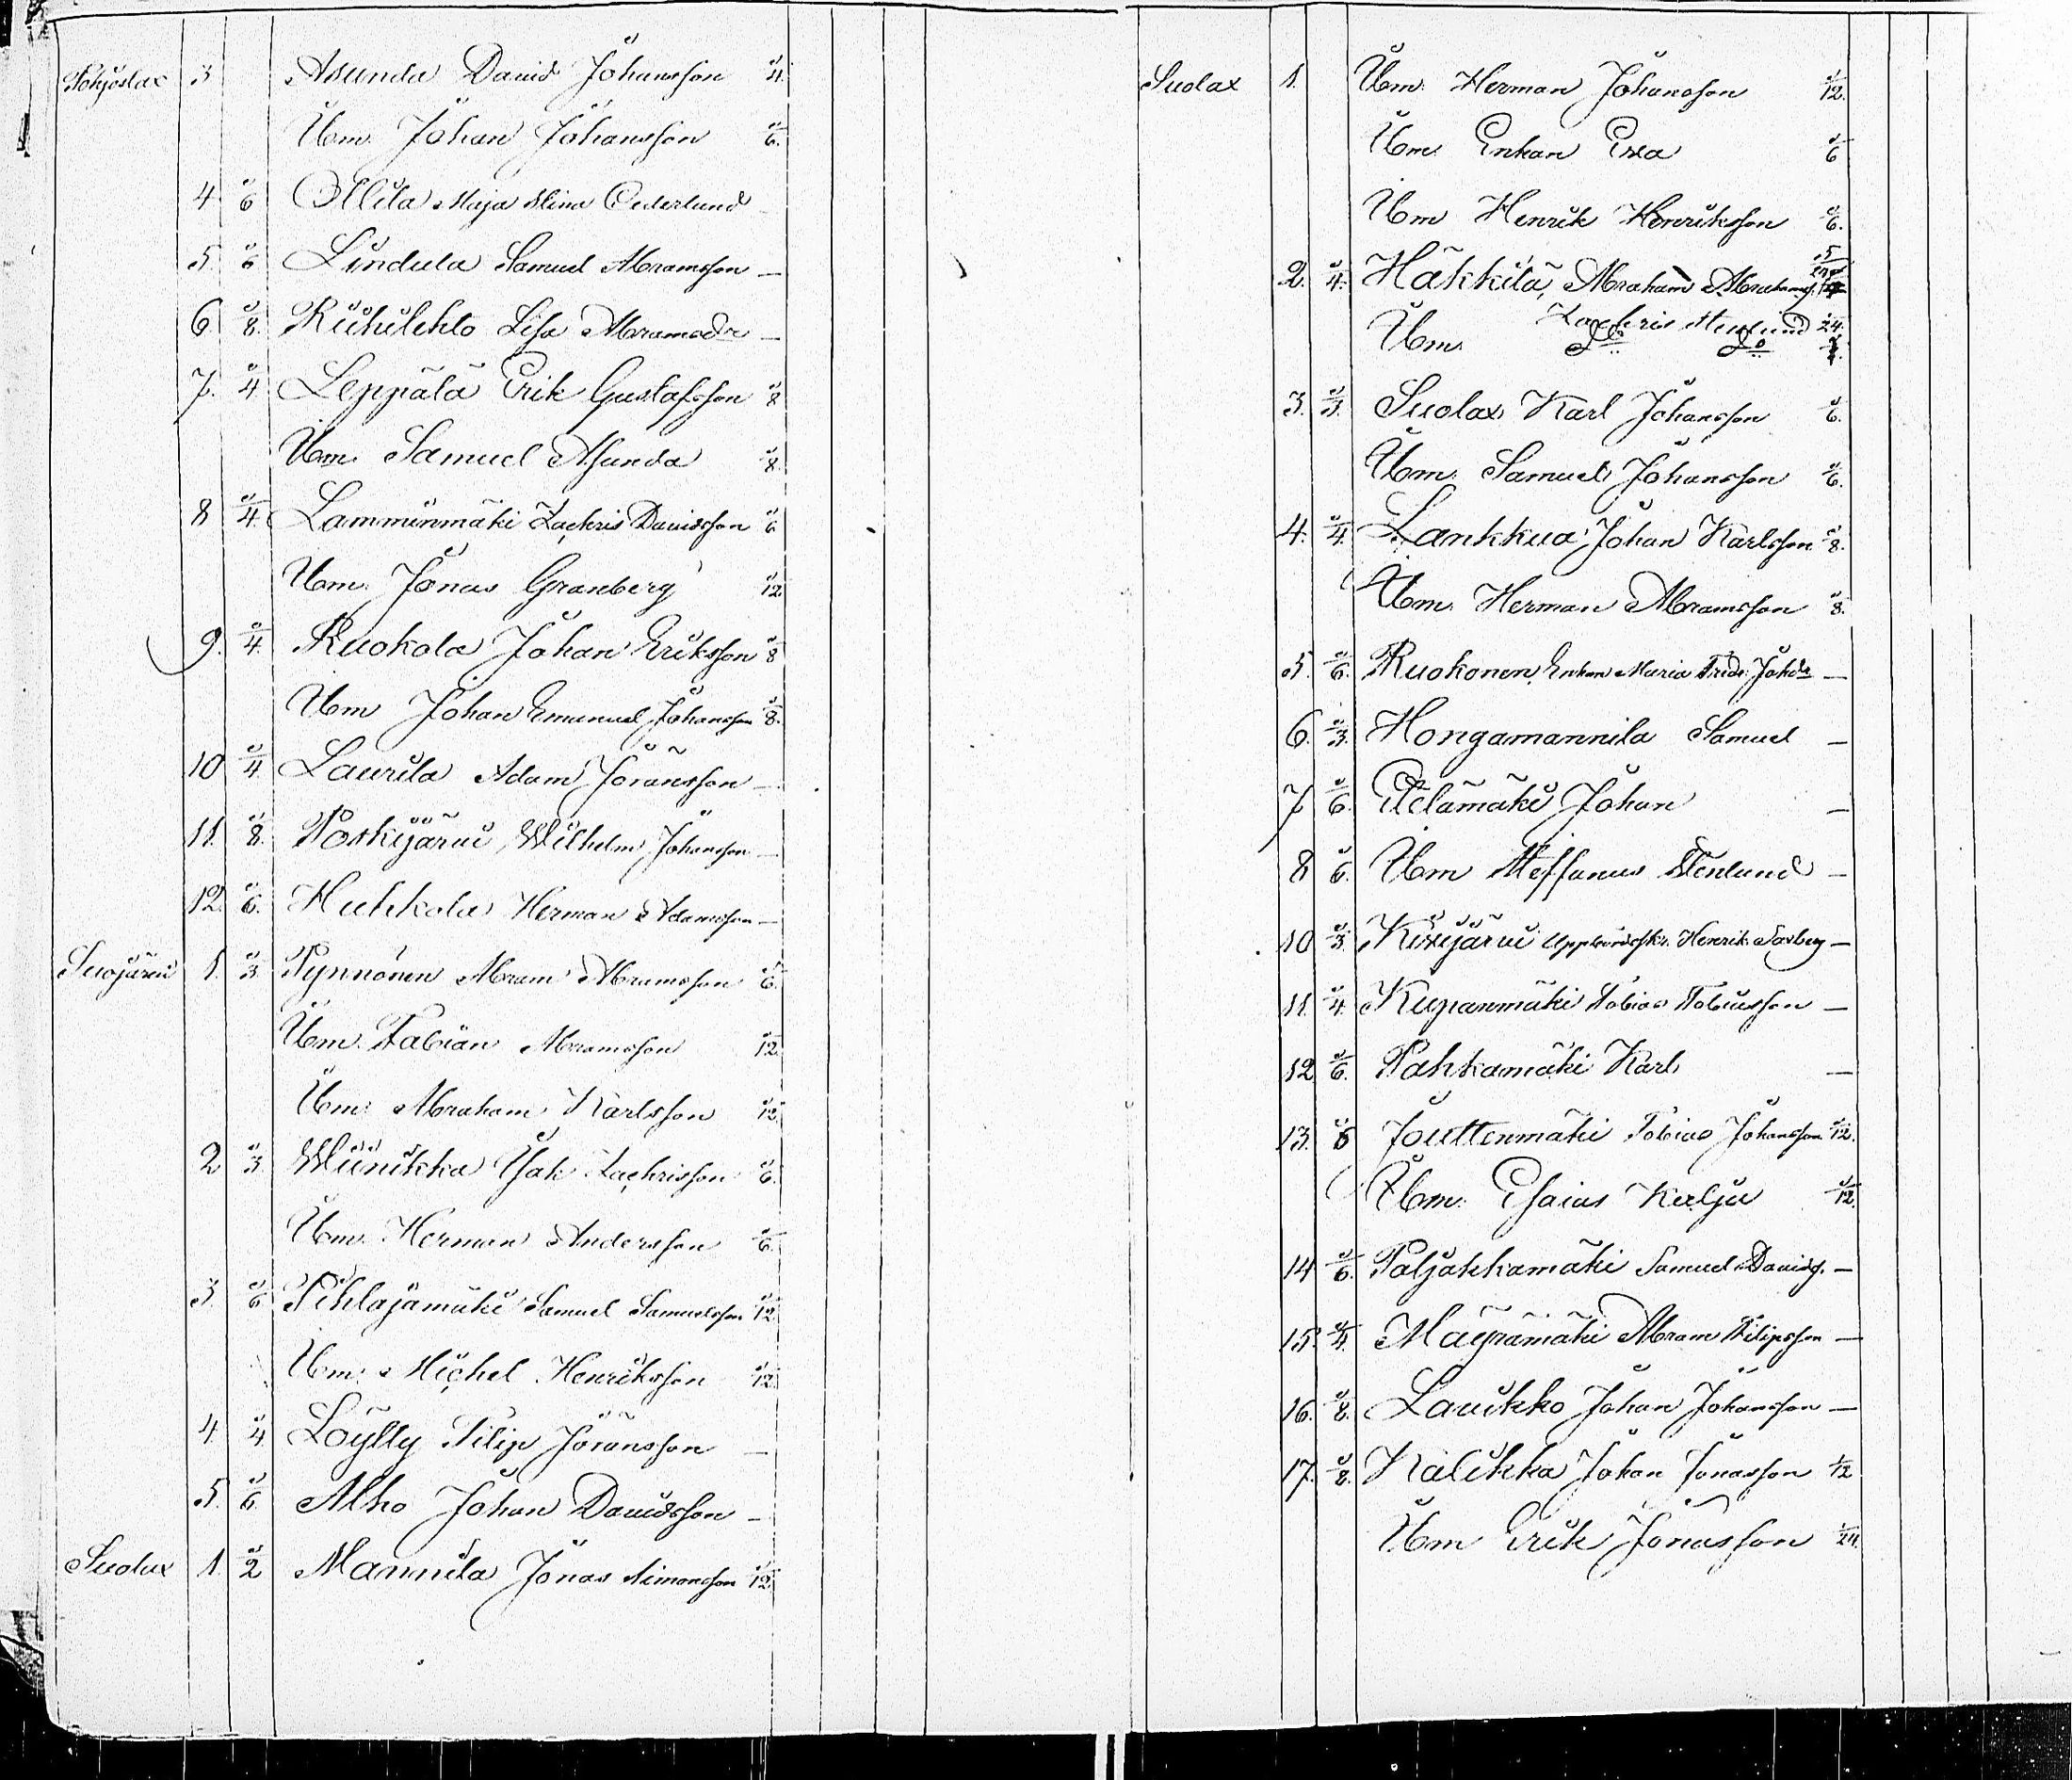 Pohjoslax 3 Asunda David Johansson 1/4.
Ibm. Johan Johansson 1/6.
4 1/6 Ollila Maja Stina Cederlund
5. 1/6 Lindula Samuel Abramsson —
6 1/8. Riihilehto Lisa Abramsdr —
7. 1/4 Leppälä Erik Gustafsson 1/8
Ibm. Samuel Asunda 1/8.
8 1/4. Lamminmäki Zachris Davidsson 1/6
Ibm. Jonas Granberg 1/12
9. 1/4. Ruokola Johan Eriksson 1/8
Ibm Johan Emanuel Johansson 1/8.
10 1/4. Laurila Adam Göransson —
11. 1/8. Poskijärvi Wilhelm Johansson —
12. 1/6. Huhkola Herman Adamsson —
Suojärvi 1. 1/3 Pynnönen Abram Abramsson 1/6.
Ibm. Fabian Abramsson 1/12
Ibm. Abraham Karlsson 1/12
2 1/3 Wiinikka Isak Zachrisson 1/6.
Ibm. Herman Andersson 1/6.
3. 1/6 Pihlajamäki Samuel Samuelsson 1/12
Ibm. Michel Henriksson 1/12
4. 1/4 Löylly Filip Göransson —
5. 1/6. Alho Johan Davidsson —
Suolax 1 1/2 Mannila Jonas Simonsson 1/12
Suolax 1. Ibm. Herman Johansson 1/12.
Ibm. Enkan Eva 1/6
Ibm Henrik Henriksson 1/6.
2. 1/4. Häkkilä, Abraham Abrahamss.
Zachris Stenlund 1/24.
Ibm. Do Do
3. 1/3. Suolax Karl Johansson 1/6.
Ibm. Samuel Johansson 1/6.
4. 1/4. Lankkua Johan Karlsson 1/8.
Ibm. Herman Abramsson 1/8.
5. 1/6. Ruokonen Enkan Maria Fred. Johdr —
6. 1/3. Hongamannila Samuel —
7 1/6. Etelämäki Johan —
8 1/6. Ibm Steffanus Stenlund —
10 1/3. Kivijärvi Henrik Saxberg —
11. 1/4. Kupanmäki Tobias Tobiasson —
12 1/6. Pahkamäki Karl —
13. 1/6 Jouttenmäki Tobias Johansson 1/12.
Ibm. Esaias Kulju 1/12.
14 1/6. Paljakkamäki Samuel Davids. —
15. 1/4. Mäyrämäki Abram Filipsson —
16. 1/8. Lavikko Johan Johansson —
17. 1/8. Kalikka Johan Jonasson 1/12
Ibm Erik Jonasson 1/24.